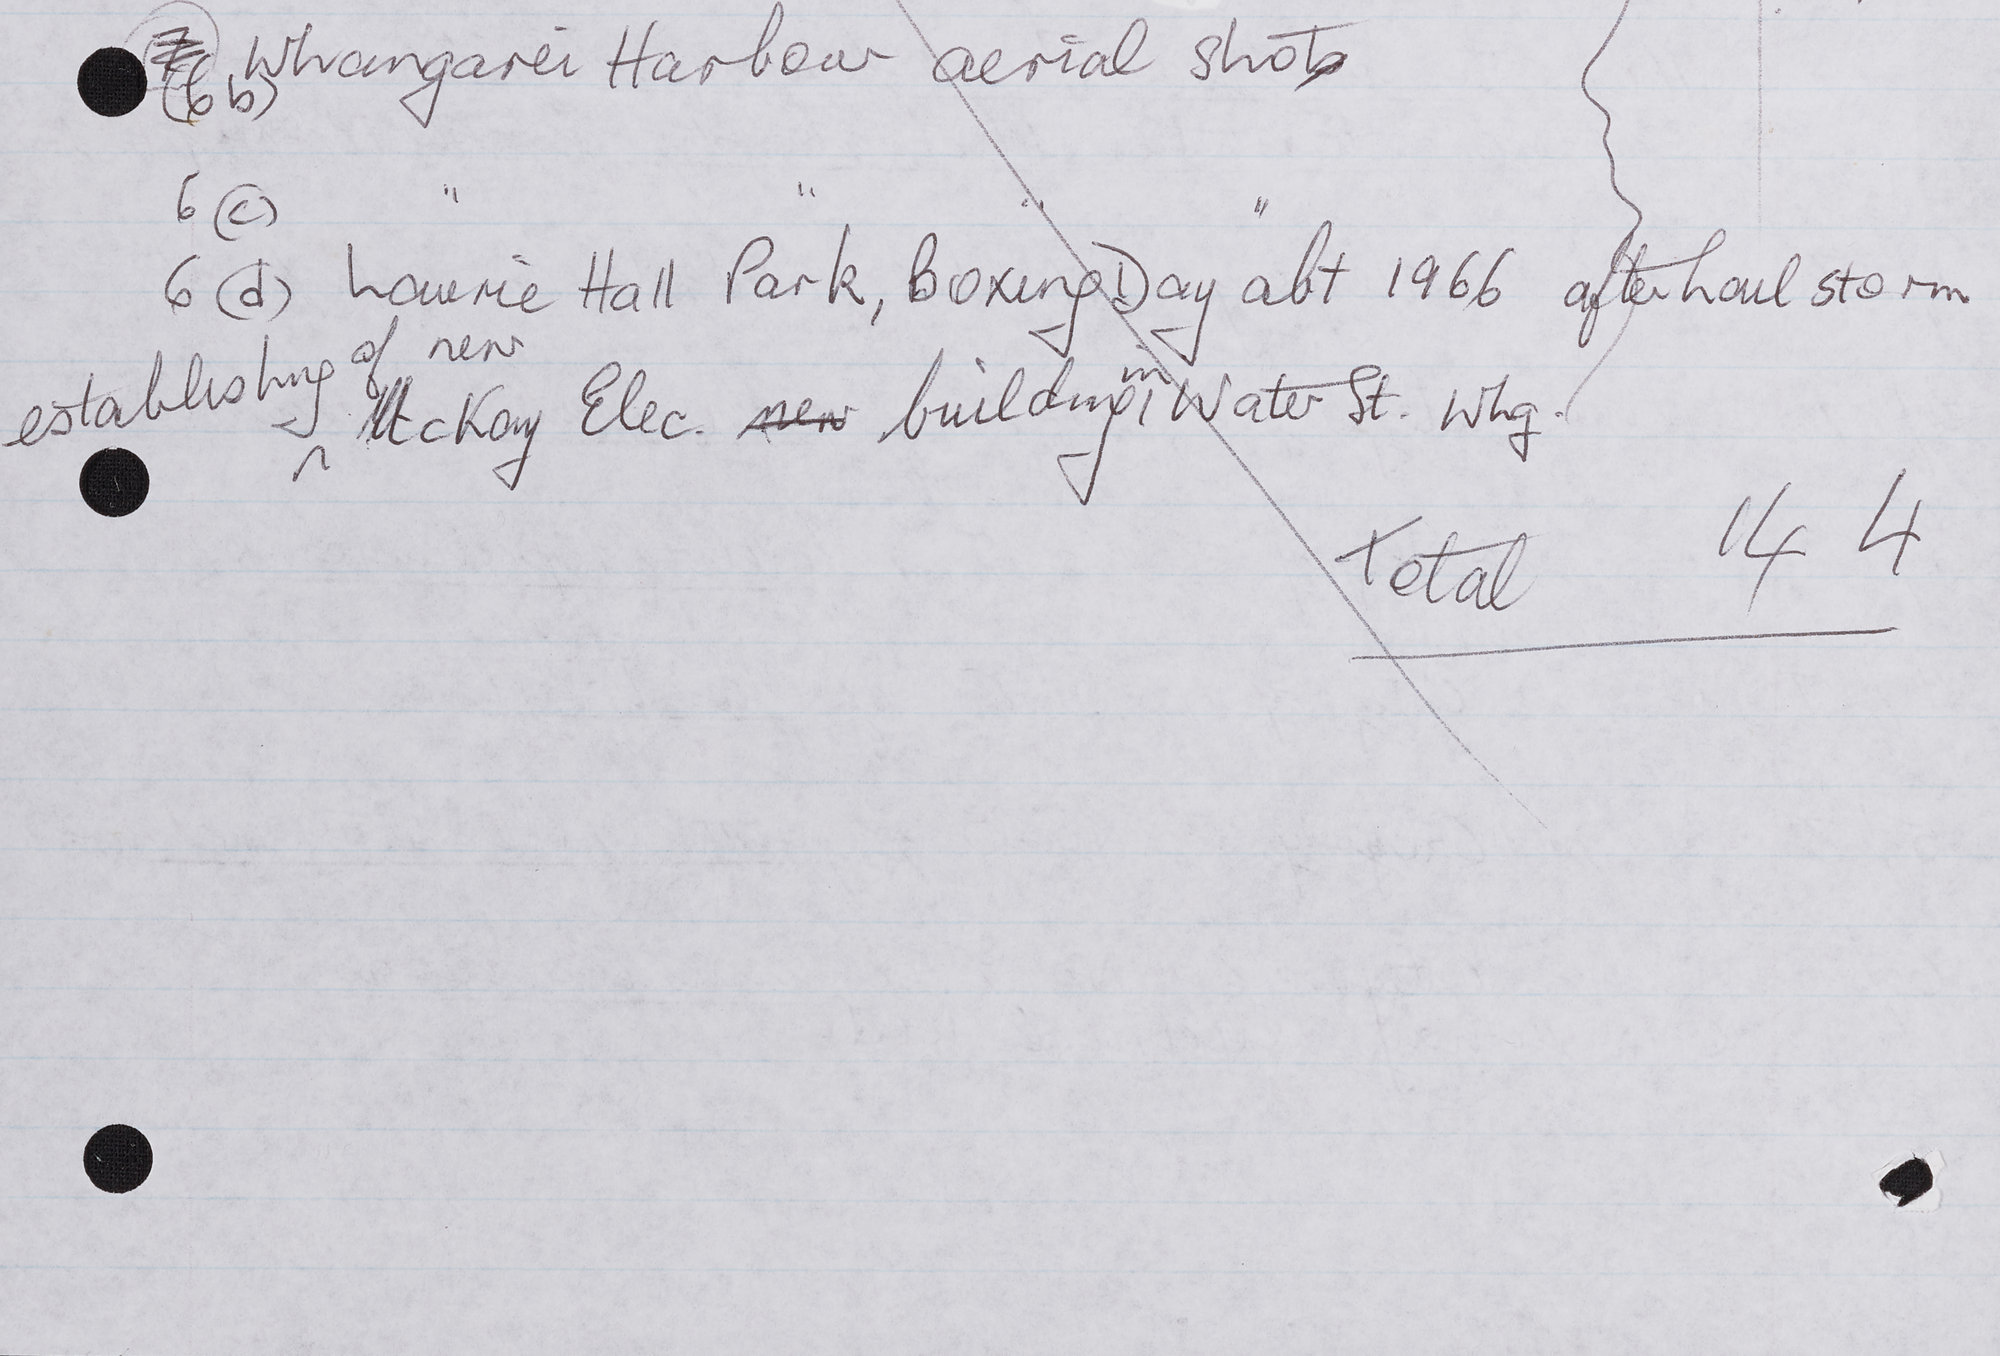 (6b) Whangarei Harbour aerial shots
6(c) " " " "
6(d) Laurie Hall Park, Boxing Day abt 1966 after hail storm
establishing of new McKay Elec. new building in Water St. Whg.
Total 14 4